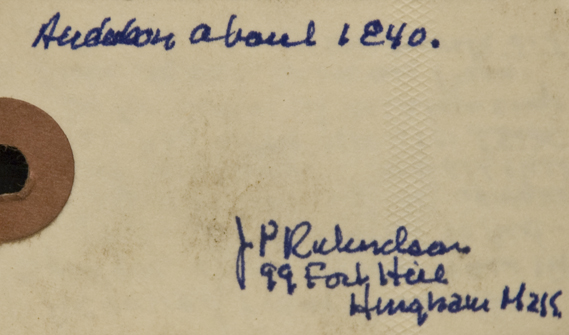 Audubon about 1840.
J P Richardson
99 Fort Hill
Hingham Mass.